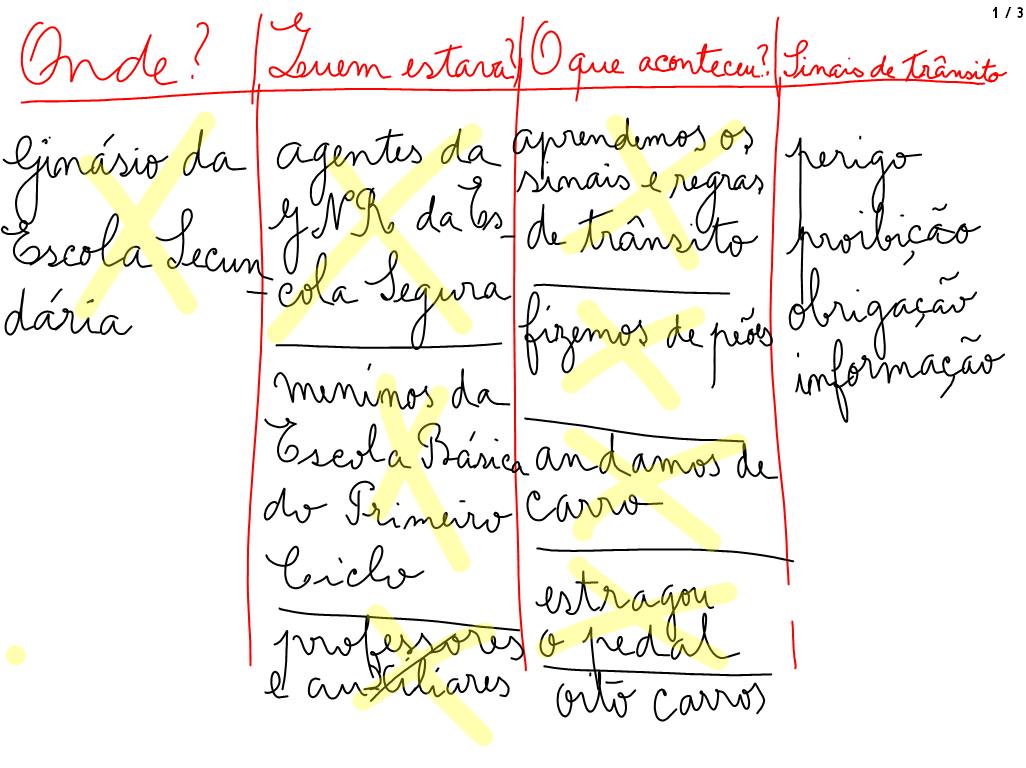 1 / 3
Onde?
Ginásio da
Escola Secun
dária
Quem estava?
agentes da
GNR da Es_
cola Segura
meninos da
Escola Básica
do Primeiro
Ciclo
professores
e auxiliares
O que aconteceu?
aprendemos os
sinais e regras
de trânsito
fizemos de peões
andamos de
carro
estragou
o pedal
oito carros
Sinais de trânsito
perigo
proibição
obrigação
informação